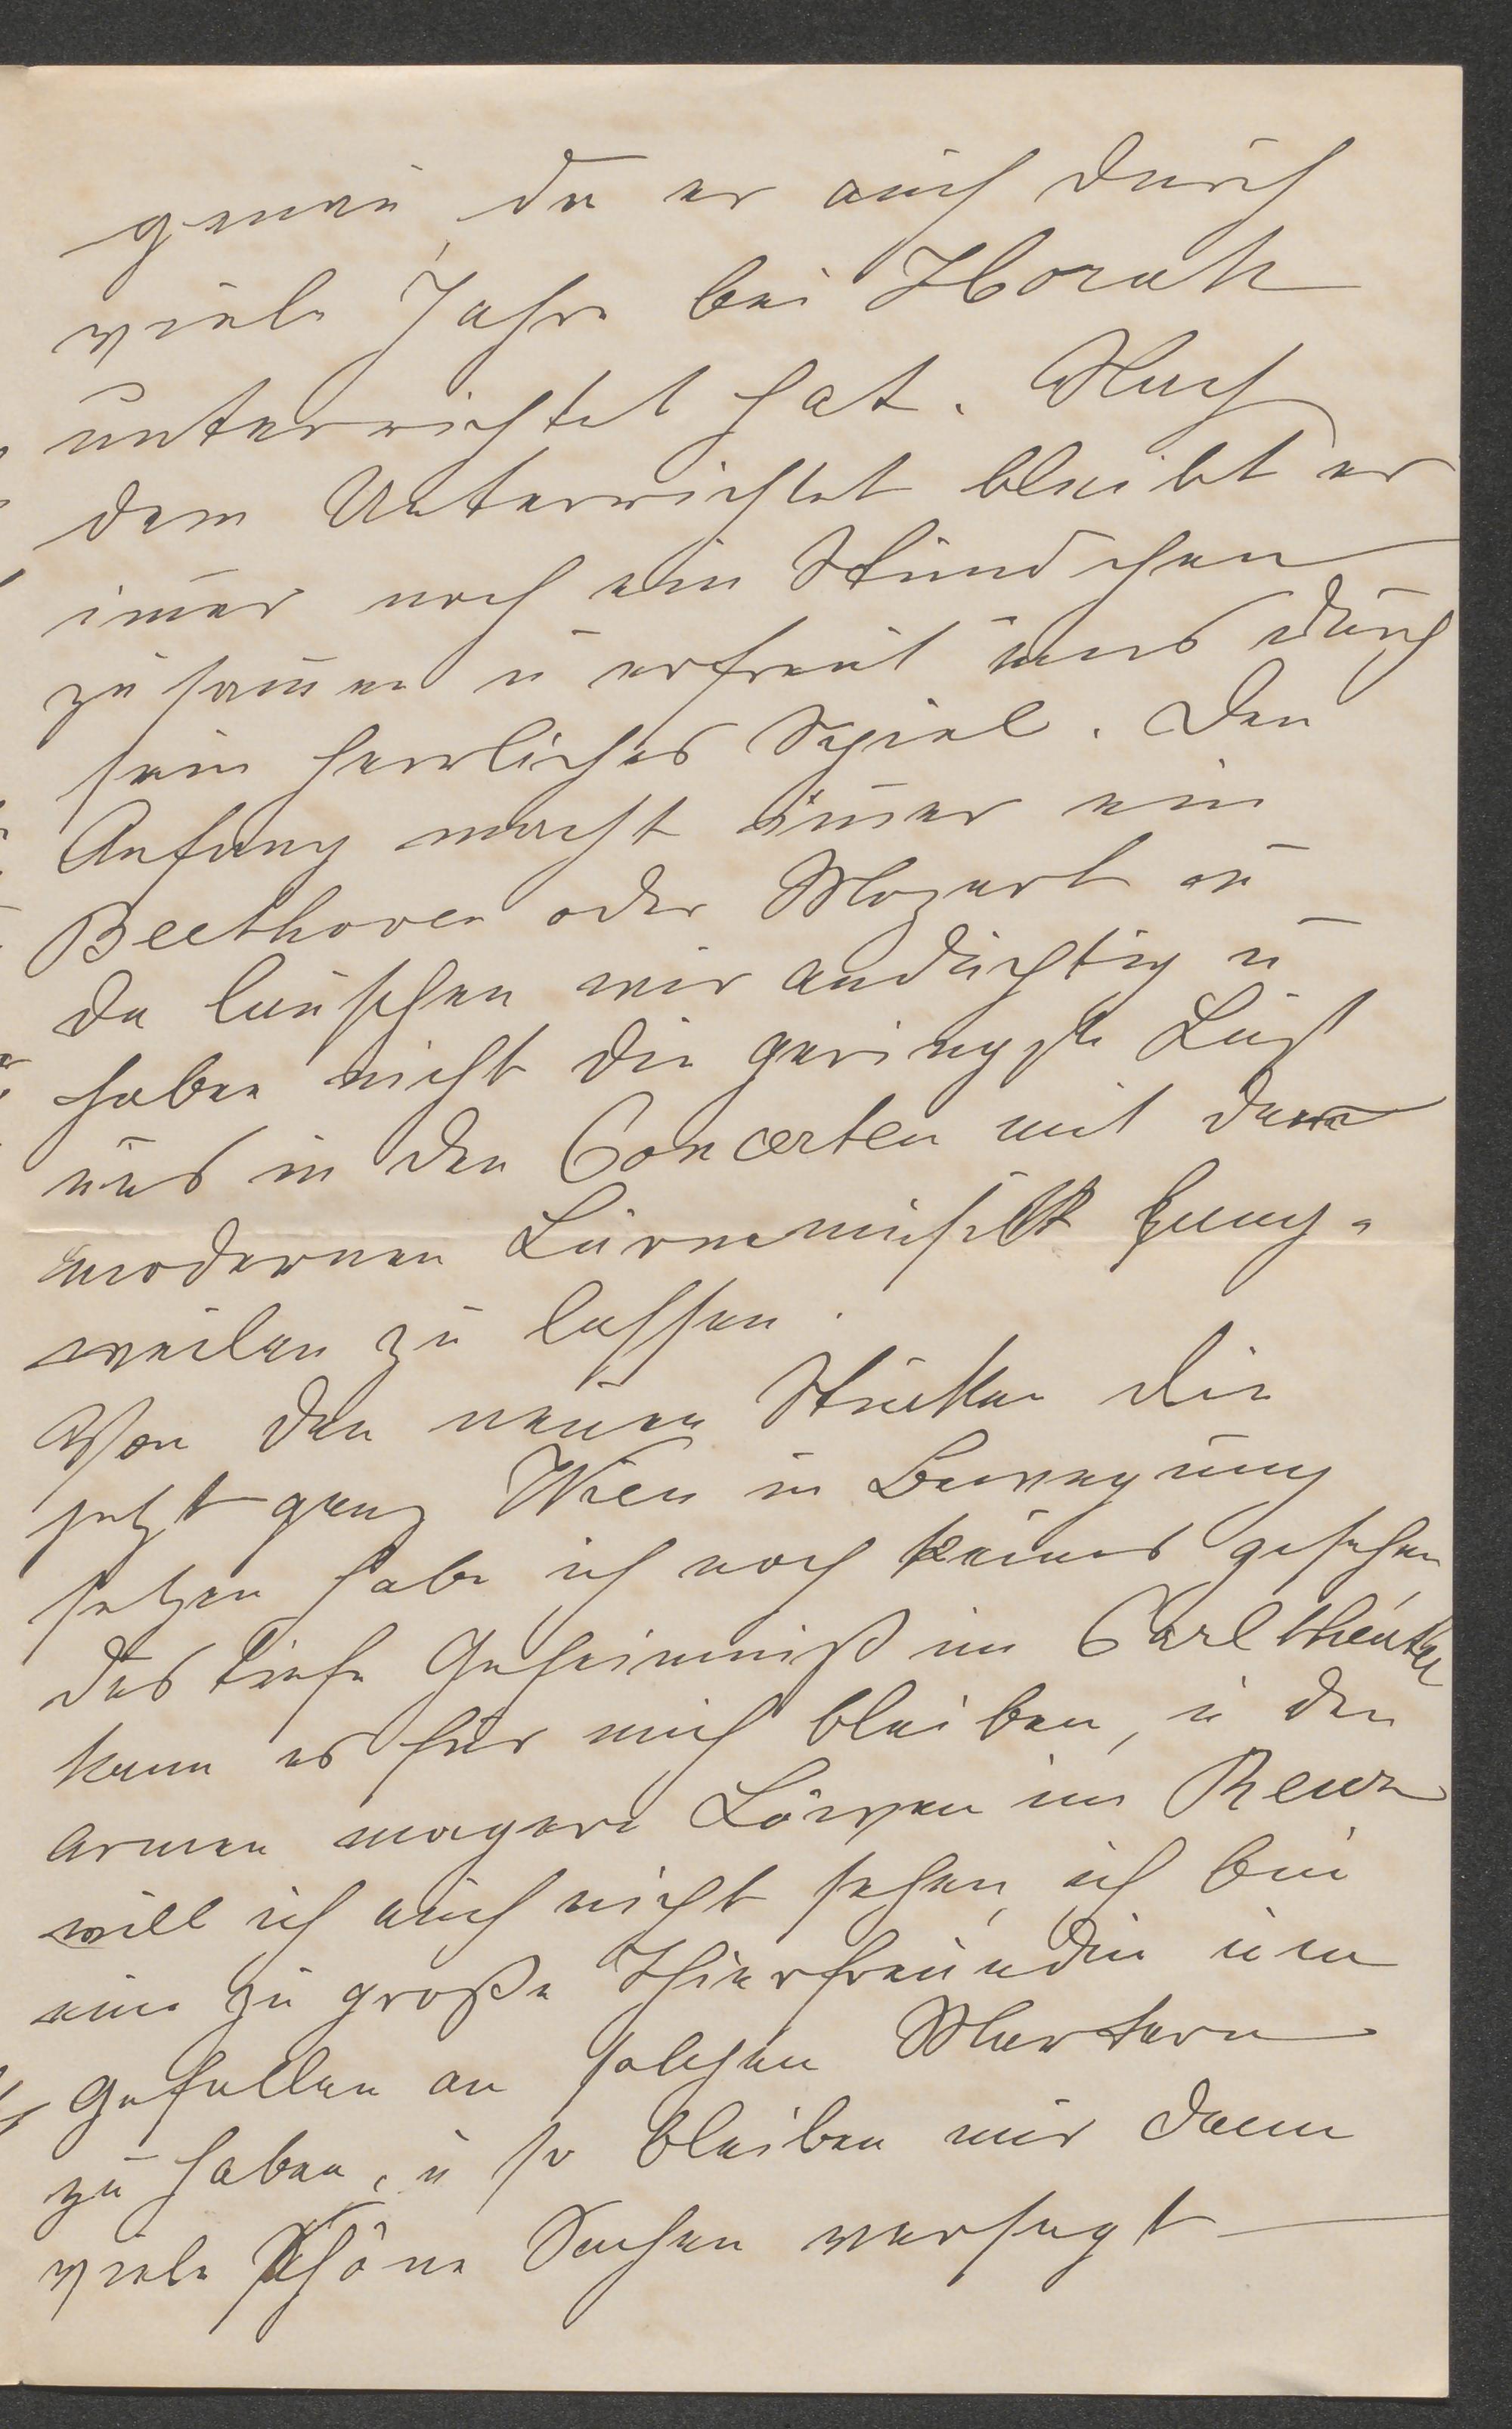 genau, da er auch durch
viele Jahre bei Horak
unterrichtet hat. Nach
dem Unterrichtet bleibt er
im̄er noch ein Stündchen
zusam̄en u erfreut uns durch
sein herrliches Spiel. Den
Anfang macht im̄er ein
Beethoven oder Mozart u
da lauschen wir andächtig u
haben nicht die geringste Lust
uns in den Concerten mit dem
modernen Lärmmusik lang-
weilen zu lassen.
Von den neuen Stücken die
jetzt ganz Wien in Bewegung
setzen habe ich noch keines gesehen,
das tiefe Geheimniß im Carltheater
kann es für mich bleiben, u den
armen magern Löwen im Renz
will ich auch nicht sehen, ich bin
eine zu große Thierfreundin um
Gefallen an solchen Martern
zu haben, u so bleiben mir denn
viele schöne Sachen versagt —